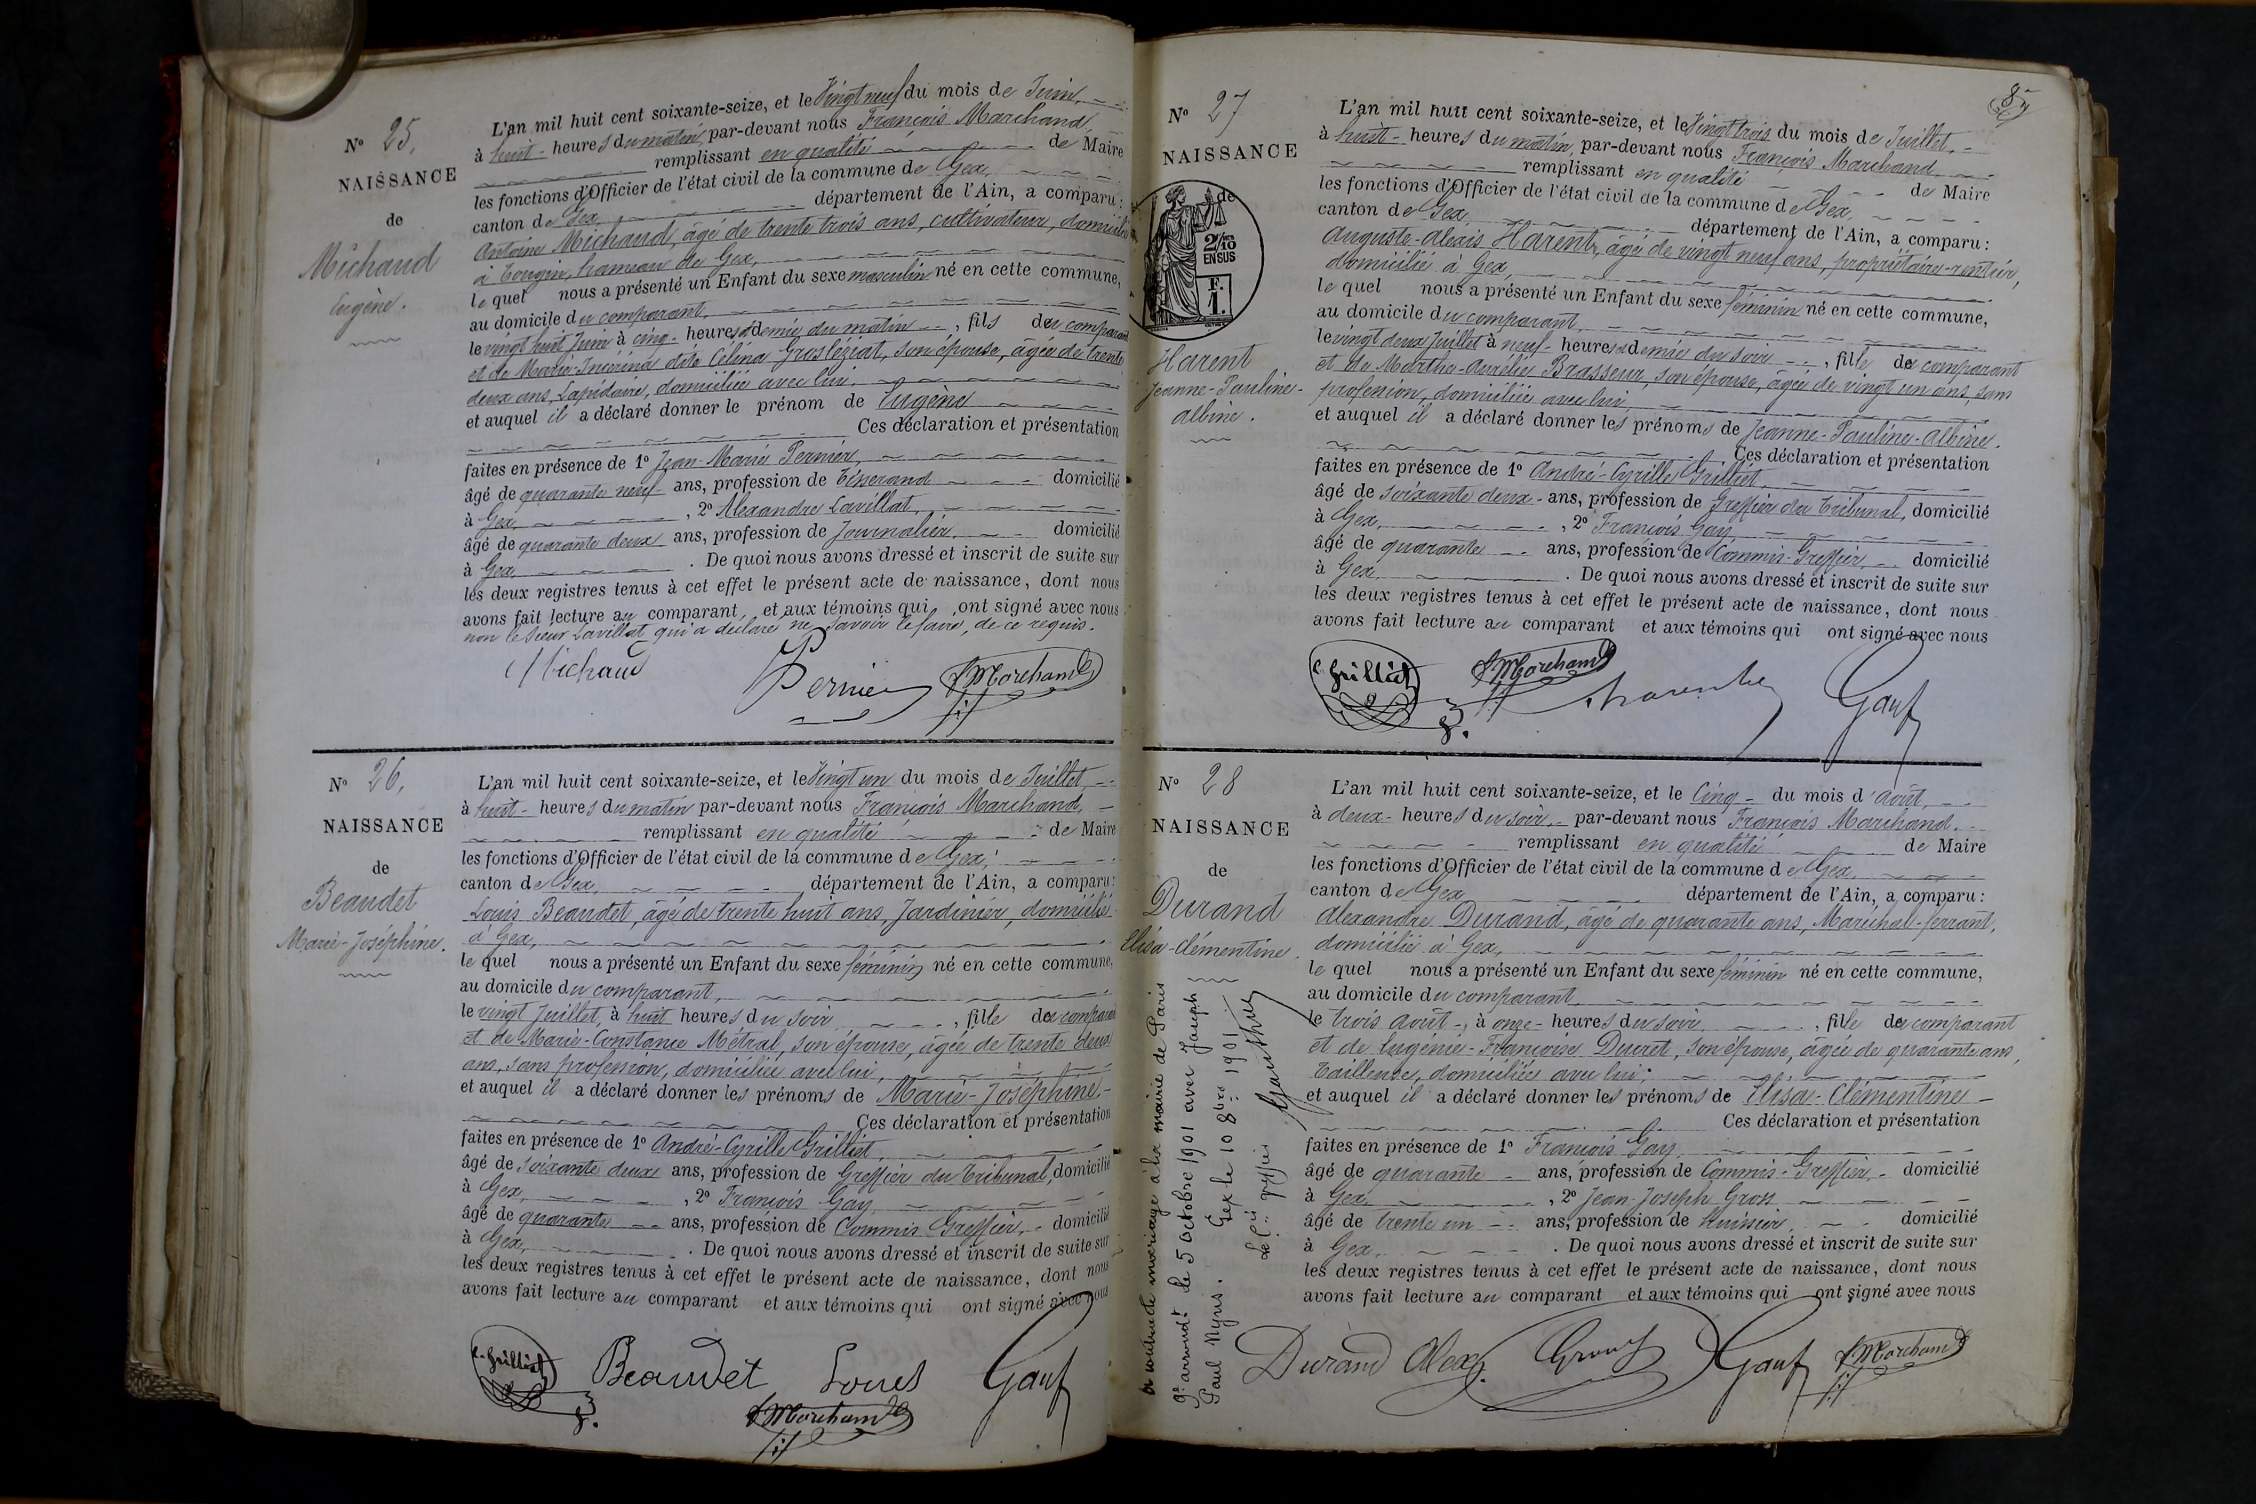 N° 25.
NAISSANCE
de
Michaud
Eugène.
L'an mil huit cent soixante-seize, et le Vingt neuf du mois de Juin,
à huit heures du matin, par-devant nous François Marchand,
remplissant en qualité de Maire
les fonctions d'Officier de l'état civil de la commune de Gex,
canton de Gex département de l'Ain, a comparu:
Antoine Michaud, âgé de trente trois ans, cultivateur, domicilié
à Tougin, hameau de Gex,
lequel nous a présenté un Enfant du sexe masculin né en cette commune,
au domicile du comparant,
le vingt huit Juin à cinq heures & demie du matin, fils du comparant
et de Marie dite Célina Grosléziat, son épouse, âgée de trente
deux ans, Lapidaire, domiciliée avec lui,
et auquel il a déclaré donner le prénom de Eugène
Ces déclaration et présentation
faites en présence de 1° Jean-Marie Pernier,
âgé de quarante neuf ans, profession de Tisserand domicilié
à Gex, , 2° Alexandre Lavillat,
âgé de quarante deux ans, profession de Journalier, domicilié
à Gex, . De quoi nous avons dressé et inscrit de suite sur
les deux registres tenus à cet effet le présent acte de naissance, dont nous
avons fait lecture au comparant, et aux témoins qui ont signé avec nous
non le sieur Lavillat qui a déclaré ne savoir le faire, de ce requis.
Michaud Pernier Marchand
N° 26.
NAISSANCE
de
Beaudet
Marie-Joséphine.
L'an mil huit cent soixante-seize, et le Vingt un du mois de Juillet,
à huit heures du matin par-devant nous François Marchand,
remplissant en qualité de Maire
les fonctions d'Officier de l'état civil de la commune de Gex,
canton de Gex, département de l'Ain, a comparu:
Louis Beaudet, âgé de trente huit ans, Jardinier, domicilié
à Gex,
lequel nous a présenté un Enfant du sexe féminin né en cette commune,
au domicile du comparant,
le vingt Juillet, à huit heures du soir, fille du comparant
et de Marie-Constance Métral, son épouse, âgée de trente deux
ans, sans profession, domiciliée avec lui,
et auquel il a déclaré donner les prénoms de Marie-Joséphine
Ces déclaration et présentation
faites en présence de 1° André-Cyrille Grilliet,
âgé de soixante deux ans, profession de Greffier du Tribunal, domicilié
à Gex, , 2° François Gay,
âgé de quarante ans, profession de Commis Greffier, domicilié
à Gex, . De quoi nous avons dressé et inscrit de suite sur
les deux registres tenus à cet effet le présent acte de naissance, dont nous
avons fait lecture au comparant et aux témoins qui ont signé avec nous
C. Grilliet Beaudet Louis Gay
Marchand
87
N° 27
NAISSANCE
de
2/10
EN SUS
F.
1.
Harent
Jeanne-Pauline-
Albine.
L'an mil huit cent soixante-seize, et le Vingt trois du mois de Juillet,
à huit heures du matin, par-devant nous François Marchand
remplissant en qualité de Maire
les fonctions d'Officier de l'état civil de la commune de Gex,
canton de Gex, département de l'Ain, a comparu:
Auguste-Alexis Harent, âgé de vingt neuf ans, propriétaire-rentier,
domicilié à Gex,
lequel nous a présenté un Enfant du sexe féminin né en cette commune,
au domicile du comparant,
le vingt deux Juillet à neuf heures & demie du soir, fille du comparant
et de Marthe-Aurélie Brasseur, son épouse, âgée de vingt un ans, sans
profession, domiciliée avec lui
et auquel il a déclaré donner les prénoms de Jeanne-Pauline-Albine.
Ces déclaration et présentation
faites en présence de 1° André-Cyrille Grilliet,
âgé de soixante deux ans, profession de Greffier du Tribunal, domicilié
à Gex, , 2° François Gay,
âgé de quarante ans, profession de Commis-Greffier, domicilié
à Gex, . De quoi nous avons dressé et inscrit de suite sur
les deux registres tenus à cet effet le présent acte de naissance, dont nous
avons fait lecture au comparant et aux témoins qui ont signé avec nous
C. Grilliet Marchand Harent Gay
N° 28
NAISSANCE
de
Durand
Elisa-Clémentine.
mariage à la mairie de Paris
9e arrondt le 5 octobre 1901 avec Joseph
Paul Nyris. Gex le 10 8bre 1901
Le Cis greffier Gauthier
L'an mil huit cent soixante-seize, et le Cinq du mois d'août,
à deux heures du soir, par-devant nous François Marchand,
remplissant en qualité de Maire
les fonctions d'Officier de l'état civil de la commune de Gex,
canton de Gex département de l'Ain, a comparu:
Alexandre Durand, âgé de quarante ans, Maréchal-ferrant,
domicilié à Gex,
lequel nous a présenté un Enfant du sexe féminin né en cette commune,
au domicile du comparant
le trois août, à onze heures du soir, fille du comparant
et de Eugénie-Françoise Ducret, son épouse, âgée de quarante ans,
Tailleuse, domiciliée avec lui;
et auquel il a déclaré donner les prénoms de Elisa-Clémentine
Ces déclaration et présentation
faites en présence de 1° François Gay,
âgé de quarante ans, profession de Commis-Greffier, domicilié
à Gex, , 2° Jean-Joseph Gros
âgé de trente un ans, profession de Huissier, domicilié
à Gex, . De quoi nous avons dressé et inscrit de suite sur
les deux registres tenus à cet effet le présent acte de naissance, dont nous
avons fait lecture au comparant et aux témoins qui ont signé avec nous
Durand Alex. Gros Gay Marchand